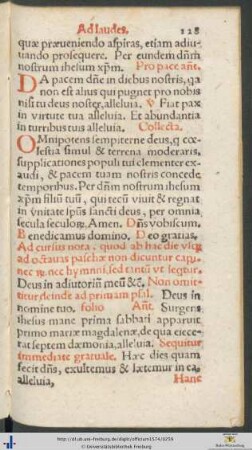 Ad laudes.
128
quæ præveniendo aspiras, etiam adiu-
uando prosequere. Per eundem dñm
nostrum ihesum xpm. Pro pace añt.
DA pacem dñe in diebus nostris, qa
non est alius qui pugnet pro nobis
nisi tu deus noster, alleluia. V Fiat pax
in virtute tua alleluia. Et abundantia
in turribus tuis alleluia. Collecta.
OMnipotens sempiterne deus, q cœ-
lestia simul & terrena moderaris,
supplicationes populi tui clementer ex-
audi, & pacem tuam nostris concede
temporibus. Per dñm nostrum ihesum
xpm filiũ tuũ, qui tecũ viuit & regnat
in vnitate spũs sancti deus, per omnia
secula seculoꝝ. Amen. Dñs vobiscum,
Benedicamus domino, Deo gratias,
Ad cursus nota, quod ab hac die vsqꝫ
ad octauas paschæ non dicuntur capit-
nec hymni, sed tantũ vt seqtur.
Deus in adiutoriũ meũ &c. Non omit-
titur deinde ad primam psal. Deus in
nomine tuo, folio Añt. Surgens
ihesus mane prima sabbati apparuit
primo mariæ magdalenæ, de qua eiece-
rat septem dæmonia, alleluia, Sequitur
immediate graduale. Hæc dies quam
fecit dñs, exultemus & lætemur in ea,
alleluia, Hanc
http://dl.ub.uni-freiburg.de/diglit/officium1574/0259
© Universitätsbibliothek Freiburg